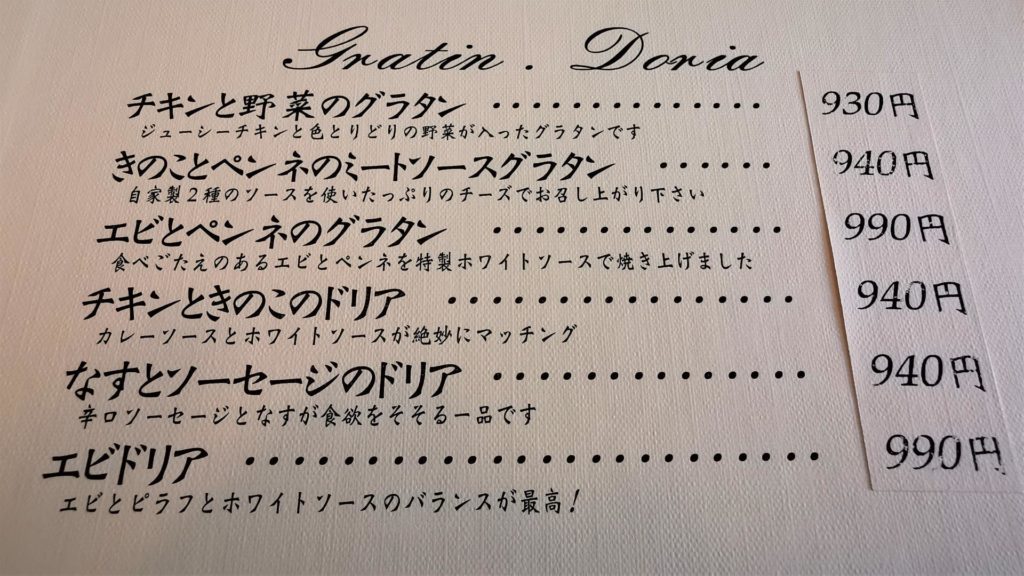 Gratin . Doria
チキンと野菜のグラタン ・・・・・・・・・・・・・・ 930円
ジューシーチキンと色とりどりの野菜が入ったグラタンです
きのことペンネのミートソースグラタン ・・・・・・ 940円
自家製2種のソースを使いたっぷりのチーズでお召し上がり下さい
エビとペンネのグラタン ・・・・・・・・・・・・・・ 990円
食べごたえのあるエビとペンネを特製ホワイトソースで焼き上げました
チキンときのこのドリア ・・・・・・・・・・・・・・・・ 940円
カレーソースとホワイトソースが絶妙にマッチング
なすとソーセージのドリア ・・・・・・・・・・・・・・ 940円
辛口ソーセージとなすが食欲をそそる一品です
エビドリア ・・・・・・・・・・・・・・・・・・・・・・・・ 990円
エビとピラフとホワイトソースのバランスが最高!